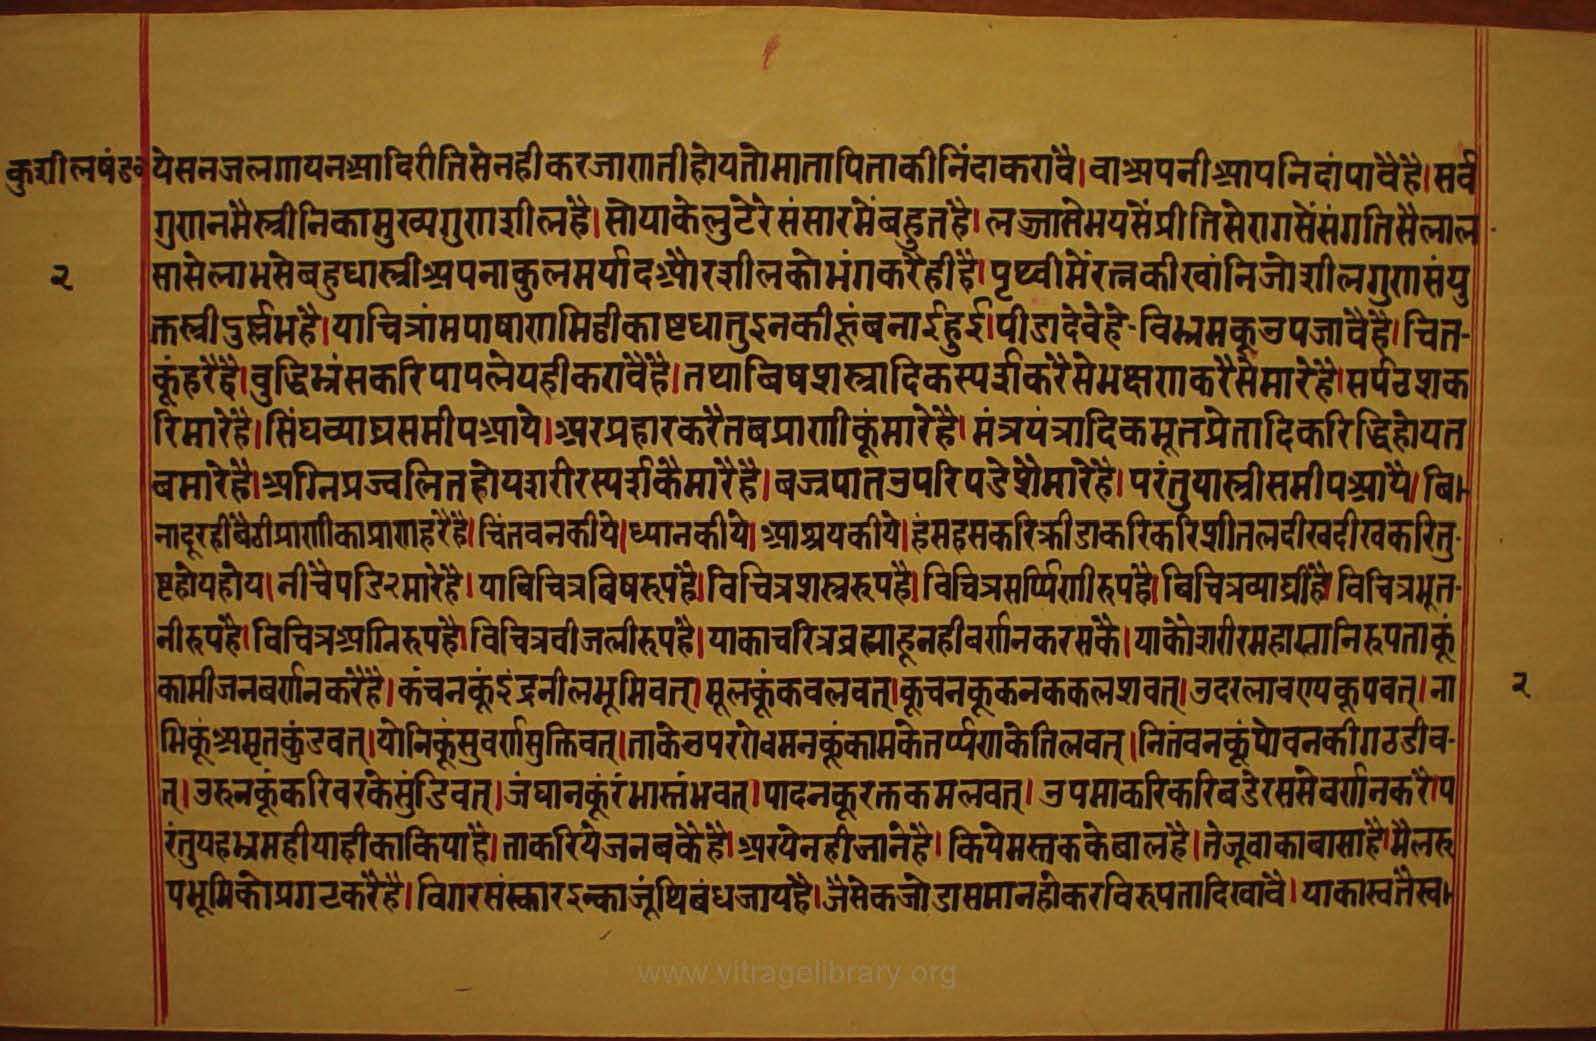 कुशीलषंड॰ येसनजलगायनआदिरीतिसेनहीकरजाणतीहोयतोमातापिताकीनिंदाकरावै। वाअपनीआपनिदांपावैहै। सर्व
गुणनमैस्त्रीनिकामुख्यगुणशीलहै। सोयाकेलुटेरेसंसारमेंबहुतहै। लज्जासेभयसेंप्रीतिसेरागसेंसंगतिसैलाल-
२ सासेलाभसेबहुधास्त्रीअपनाकुलमर्यादऔरशीलकोभंगकरैहीहै। पृथ्वीमेंरत्नकीखांनिजोशीलगुणसंयु
क्तस्त्रीदुर्ल्लभहै। याचित्रांमपाषाणमिट्टीकाष्टधातुइनकीहूंबनाईहुई। पीडादेवेहे-विभ्रमकूउपजावैहै। चित-
कूंहरैहै। बुद्धिभ्रंसकरिपापलेयहीकरावैहै। तथाबिषशस्त्रादिकस्पर्शकरैसेभक्षणकरैसेमारेहै। सर्पठशक
रिमारेहै। सिंघव्याघ्रसमीपआये। अरप्रहारकरैतबप्राणीकूंमारेहै। मंत्रयंत्रादिकभूतप्रेतादिकरिद्धिहोयत
बमारेहै। अग्निप्रज्वलितहोयशरीरस्पर्शकैमारैहै। बज्रपातउपरिपडेशैमारेहै। परंतुयास्त्रीसमीपआयै। बि-
नादूरहींबैठीप्राणीकाप्राणहरैहै। चिंतवनकीये। ध्यानकीये। आश्रयकीये। हंसहसकरिक्रीडाकरिकरिशीतलदीखदीखकरितु-
ष्टहोयहोय। नीचैपडि२मारेहै। याबिचित्रबिषरुपहै। विचित्रशस्त्ररुपहै। विचित्रसर्प्पिणीरुपहै। बिचित्रव्याघ्रीहै। विचित्रभूत-
नीरुपहै। विचित्रअग्निरुपहै। विचित्रवीजलीरुपहै। याकाचरित्रब्रह्माहूनहीवर्णनकरसकै। याकोशरीरमहाग्लानिरुपताकूं
कामीजनबर्णनकरैहै। कंचनकूंइंद्रनीलभूमिवत्। मूलकूंकवलवत्। कूचनकूकनककलशवत्। उदरलावण्यकूपवत्। ना २
भिकूंअमृतकुंडवत्। योनिकूंसुवर्णसुक्तिवत्। ताकेचपररोवमनकूंकामकेतर्प्पणकेतिलवत्। नितंवनकूंपोवनकीगठडीव-
त्। उरुनकूंकरिवरकेसुंडिवत्। जंघानकूंरंभास्तंभवत्। पादनकूरक्तकमलवत्। उपमाकरिकरिबडेरससेबर्णनकरै। प
रंतुयहभ्रमहीयाहीकाकियाहै। ताकरियेजनबकैहै। अरयेनहीजानेहै। कियेमस्तककेबालहै। तेजूवाकाबासाहै। मैलरु
पभूमिकोप्रगटकरैहै। विगरसंस्कारइन्काजूंथिबंधजायहै। जैसेकजोडासमानहोकरविरुपतादिखावै। याकास्वतैस्व-
www.vitragelibrary.org